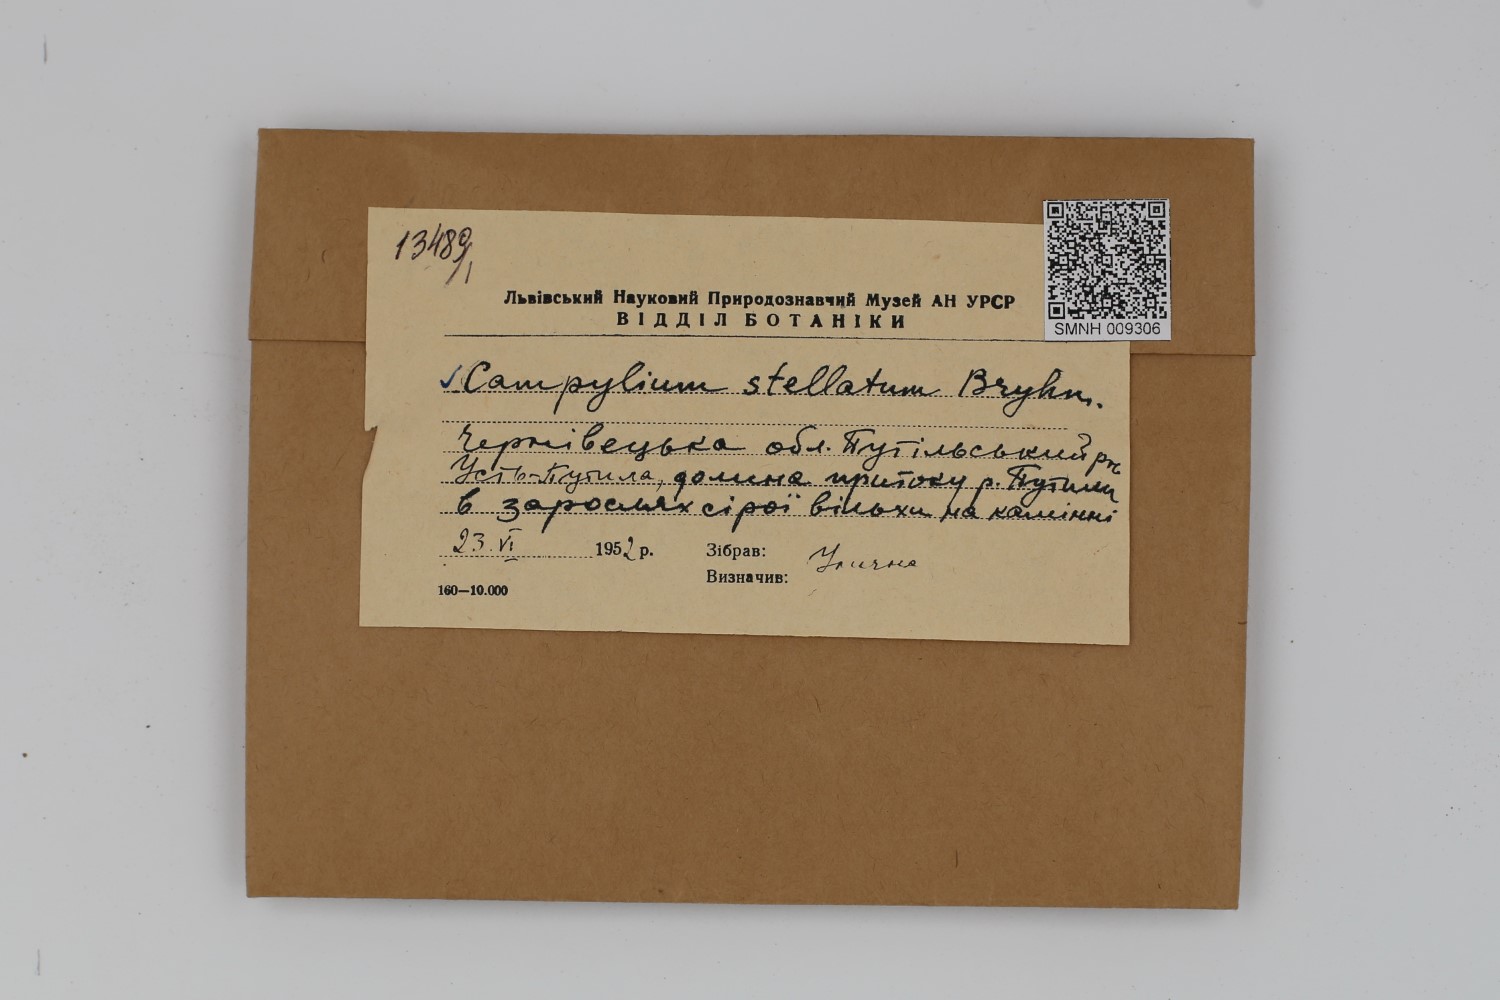 13489/1
Львівський Науковий Природознавчий Музей АН УРСР
ВІДДІЛ БОТАНІКИ
SMNH 009306
✓ Campylium stellatum Bryhn.
Чернівецька обл. Путільський рн
Усть-Путила, долина притоку р. Путили
в зарослях сірої вільхи на камінні
23.VI 1952 р. Зібрав: Улична
Визначив:
160—10.000